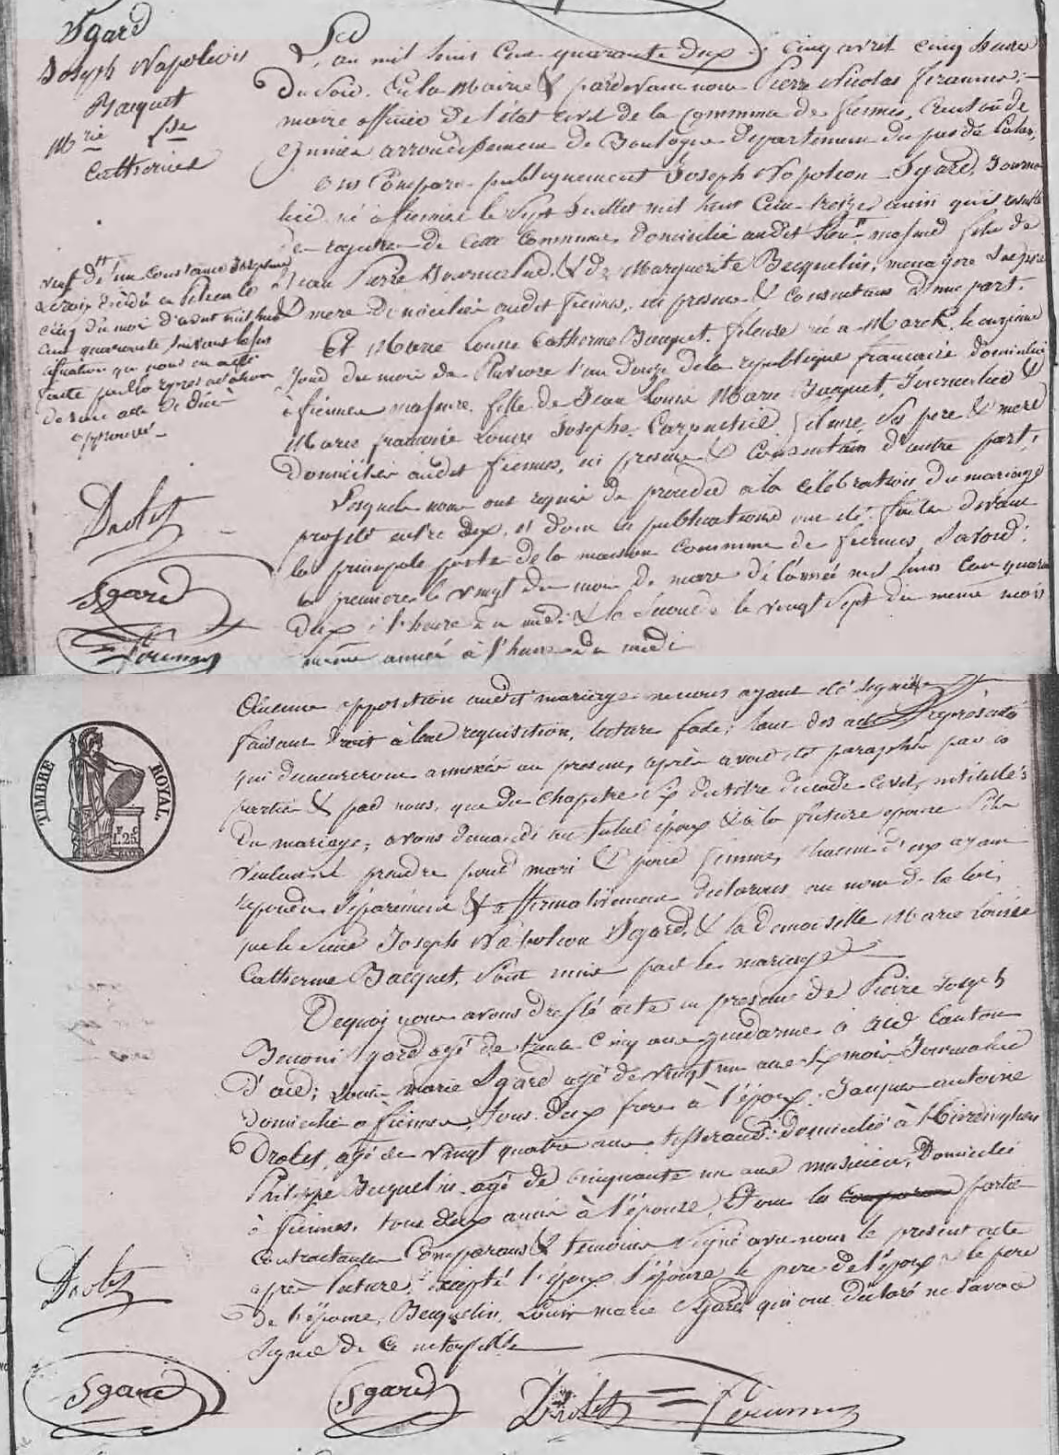 Sgard
Joseph Napoléon
Bacquet
M.rie l.se
Catherine
veuf d'une Constance Joséphine
Leroy décédée
cinq du mois d'avout mil huit
cent quarante suivant
que nous en acte
faite par
de son acte de décé
approuvé
Drolet
Sgard
Feramus
L'an mil huit cent quarante deux le cinq avril cinq heures
Du soir. En la Mairie & pardevant nous Pierre Nicolas Feramus,
maire officier de l'état civil de la commune de fiennes, Canton de
Guines arrondissement de Boulogne département du pas de Calais,
Ont Comparu publiquement Joseph Napoléon Sgard, Journa
lier né à fiennes le Sept Juillet mil huit Cent treize ainsi qu'il resulte
de registre de cette Commune, domicilié audit lieu, majeur fils de
Jean Pierre Journalier, & de Marguerite Becquelin, menagere Ses père
& mere domiciliés audit fiennes, ici presens & Consentans d'une part.
Et Marie Louise Catherine Bacquet. fileuse née à Marck, le onzieme
Jour du mois de Pluviose l'an Douze de la republique française domiciliée
à fiennes majeure, fille de Jean Louis Marie Bacquet, Journalier &
Marie françoise Louise Josephe Carpentier fileuse, Ses pere & mere
domiciliés audit fiennes, ici presens & Consentans d'autre part,
Lesquels nous ont requis de proceder à la célébration du mariage
projetté entre Eux, et dont les publications ont été faites devant
la principale porte de la maison Commune de fiennes, Savoir:
la premiere le vingt du mois de mars de l'année mil huit Cent quarante
Deux à l'heure de midi & la Seconde le vingt Sept du même mois
même année à l'heure de midi
TIMBRE ROYAL
1.25
Aucune opposition audit mariage ne nous ayant été signifiée
faisant droit à leur requisition, lecture faite, tant des actes représentés
qui demeureront annexés au present, après avoir été paraphés par les
parties & par nous, que du Chapitre Six du titre du code Civil, intitulé:
Du mariage; avons demandé au futur époux & à la future épouse S'ils
veulent Se prendre pour mari & pour femme, chacun d'eux ayant
répondu Séparément & affirmativement declarons au nom de la loi,
que le Sieur Joseph Napoléon Sgard, & la demoiselle Marie Louise
Catherine Bacquet, Sont unis par les mariage
De quoi nous avons dressé acte en presence de Pierre Joseph
Benoni Sgard agé de trente Cinq ans gendarme à Aud Canton
d'aud; Louis Marie Sgard agé de vingt un ans Six mois Journalier
domicilié à fiennes, tous deux frere à l'époux. Jacques Antoine
Drolet, agé de vingt quatre ans tisserand, domicilié à Hardinghen
Philippe Becquelin agé de cinquante un ans musicien, Domicilié
à fiennes, tous deux amis à l'épouse, Et ont les partie
Contractantes Comparans & temoins Signé avec nous le present acte
après lecture, excepté l'époux l'épouse le pere de l'époux & le pere
de l'épouse, Becquelin, Louis Marie Sgard qui ont déclaré ne Savoir
Signer de ce interpellés
Drolet
Sgard Sgard Drolet Feramus